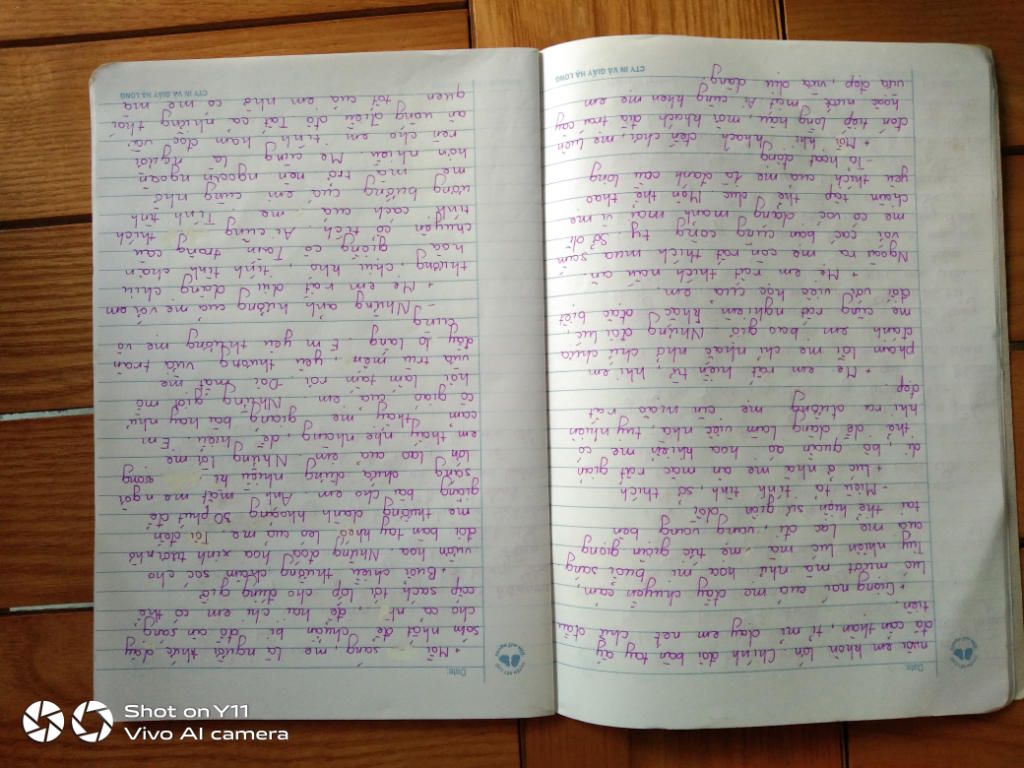 Date:
nuôi em khôn lớn. Chính đôi bàn tay ấy
đã cần thận, tỉ mỉ dạy em nét chữ đầu
tiên.
+ Giọng nói của mẹ đầy chuyện cảm,
lúc mượt mà như hoa mi buổi sáng
Tuy nhiên lúc mà mẹ tức giận giọng
của mẹ lạc đi, vang vang bên
tai thể hiện sự giận dỗi
- Miêu tả tính tình, sở thích
+ Lúc ở nhà mẹ ăn mặc rất giản
dị, bộ quần áo hoa khiến mẹ có
thể dễ dàng làm việc nhà, tuy nhiên
khi ra đường mẹ ăn mặc rất
đẹp.
+ Mẹ em rất hiền từ, khi em
phạm lỗi mẹ chỉ nhắc nhở chứ chưa
đánh em bao giờ. Nhưng đôi lúc
mẹ cũng rất nghiêm khắc đặc biệt
đối với việc học của em.
+ Mẹ em rất thích nấu ăn.
Ngoài ra mẹ còn rất thích mua sắm
với các bạn cùng công ty. Sở dĩ
mẹ có vóc dáng mảnh mai vì mẹ
chăm tập thể dục. Môn thể thao
yêu thích của mẹ là đánh cầu lông
- Tả hoạt động
+ Mỗi khi khách đến chơi, mẹ luôn
đón tiếp lòng hậu, mời khách đĩa trái cây
hoặc nước mát. Ai cũng khen mẹ em
vừa đẹp, vừa dịu dàng.
CTY IN VÀ GIẤY HẠ LONG
Date:
+ Mỗi sáng, mẹ là người thức dậy
sớm nhất để chuẩn bị đồ ăn sáng
cho cả nhà, để hai chị em có thể
cắp sách tới lớp cho đúng giờ
+ Buổi chiều thường chăm sóc cho
vườn hoa. Những đoá hoa xinh tươi nhờ
đôi bàn tay khéo léo của mẹ. Tối đến
mẹ thường dành khoảng 30 phút để
giảng bài cho em. Ánh mắt mẹ ngời
sáng chứa đựng nhiều hi vọng
lớn lao của em. Những lời mẹ
em thấy nhẹ nhàng, dễ hiểu. Em
cảm thấy mẹ giảng bài hay như
cô giáo của em. Những giọt mồ
hôi lấm tấm rơi. Đôi mắt mẹ
vừa trìu mến, yêu thương vừa tràn
đầy lo lắng. Em yêu thương mẹ vô
cùng
- Những ảnh hưởng của mẹ với em
+ Mẹ em rất dịu dàng chịu
thương, chịu khó, tính tình chan
hoà giống cô Tấm trong câu
chuyện cổ tích. Ai cũng thích
tính cách của mẹ. Tính tình
ương bướng của em cũng nhờ
mẹ mà trở nên ngoan ngoãn
hơn nhiều. Mẹ cũng là người
rèn cho em tính ham đọc và
ăn uống điều độ. Tất cả những thói
quen tốt của em nhờ có mẹ mà
CTY IN VÀ GIẤY HẠ LONG
Shot on Y11
Vivo AI camera